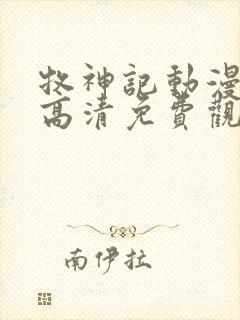 牧神記動漫
高清免費觀
南伊拉